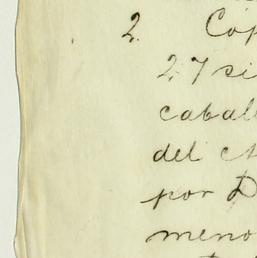 2. Cop
27 si
caball
del
por D
meno